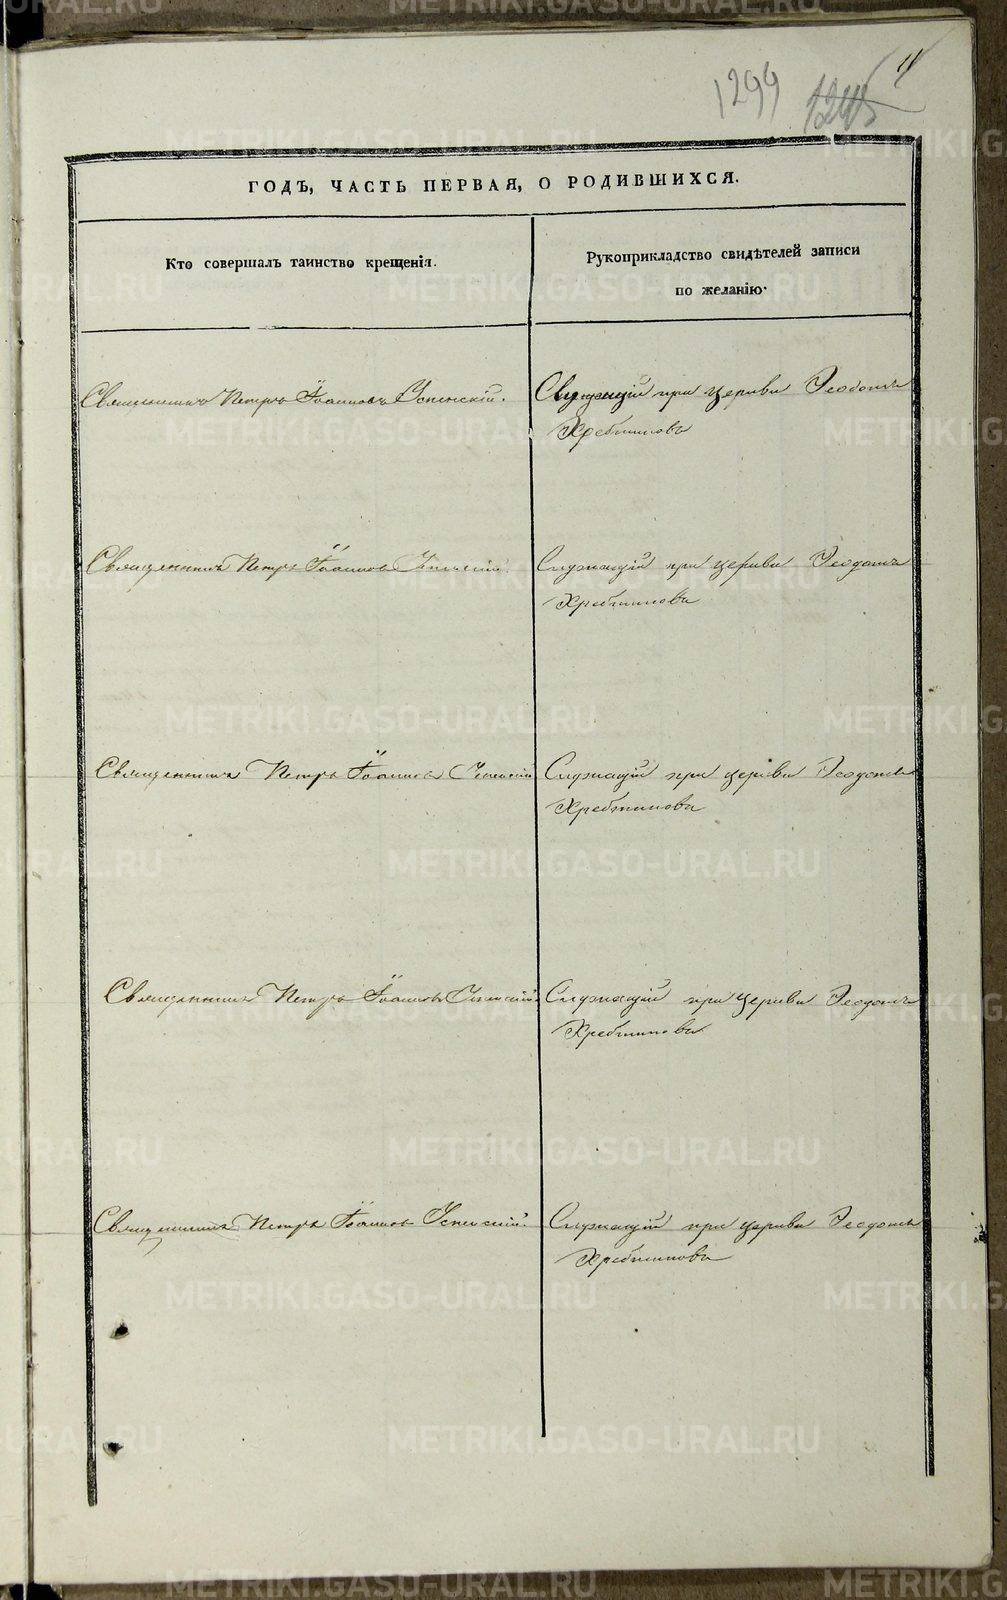 4
1299 1245
ГОДЪ, ЧАСТЬ ПЕРВАЯ, О РОДИВШИХСЯ.
Кто совершалъ таинство крещенія.
Рукоприкладство свидѣтелей записи
по желанію.
Священникъ Петръ Іоанновъ Успенскій.
Служащій при церкви Ѳеодотъ
Хребтиковъ
Священникъ Петръ Іоанновъ Успенскій.
Служащій при церкви Ѳеодотъ
Хребтиковъ
Священникъ Петръ Іоанновъ Успенскій
Служащій при церкви Ѳеодотъ
Хребтиковъ
Священникъ Петръ Іоанновъ Успенскій.
Служащій при церкви Ѳеодотъ
Хребтиковъ
Священникъ Петръ Іоанновъ Успенскій.
Служащій при церкви Ѳеодотъ
Хребтиковъ
METRIKI.GASO-URAL.RU